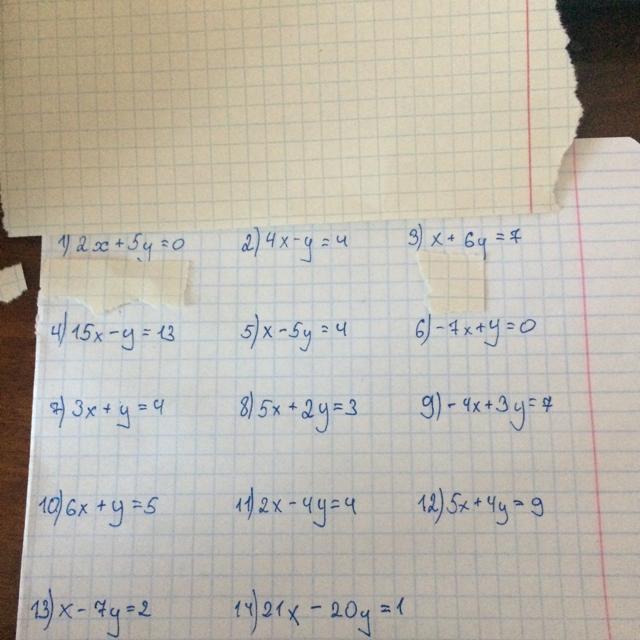 1) 2x+5y=0 2) 4x-y=4 3) x+6y=7
4) 15x-y=13 5) x-5y=4 6) -7x+y=0
7) 3x+y=4 8) 5x+2y=3 9) -4x+3y=7
10) 6x+y=5 11) 2x-4y=4 12) 5x+4y=9
13) x-7y=2 14) 21x-20y=1